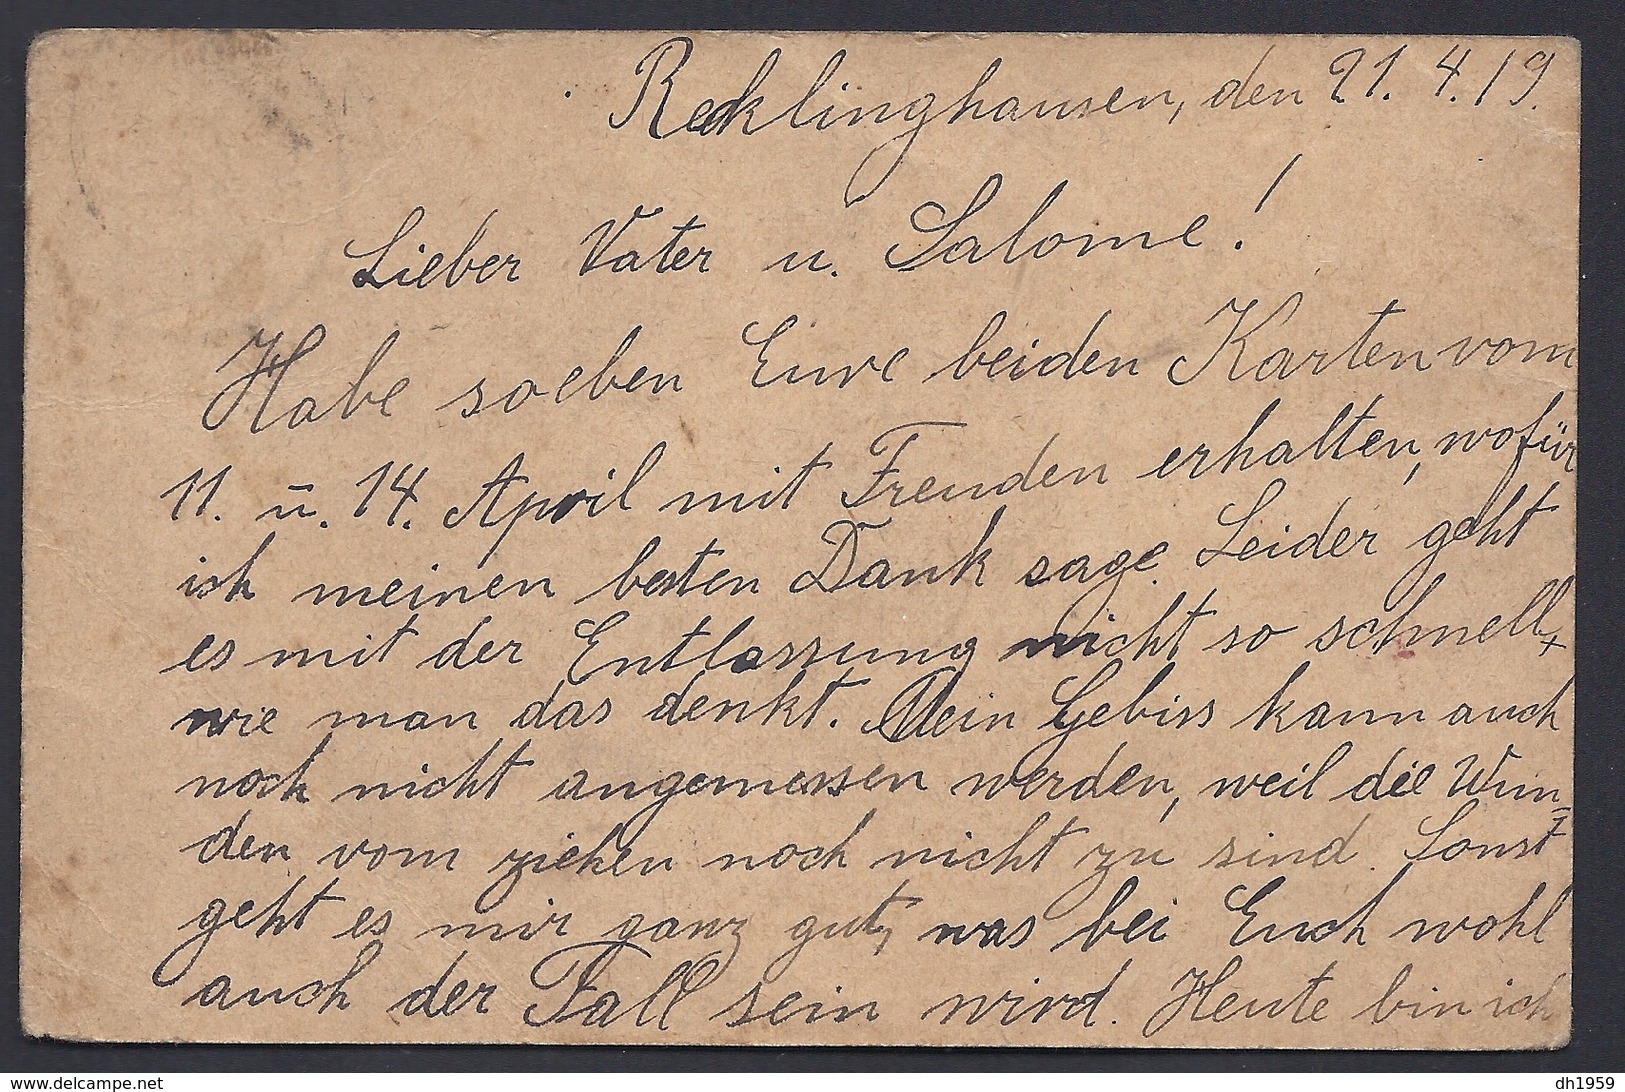 Recklinghausen, den 21.4.19.
Lieber Vater u. Salome!
Habe soeben Eure beiden Karten vom
11. u. 14. April mit Freuden erhalten, wofür
ich meinen besten Dank sage. Leider geht
es mit der Entlassung nicht so schnell,
wie man das denkt. Mein Gebiss kann auch
noch nicht angemessen werden, weil die Wun=
den vom ziehen noch nicht zu sind. Sonst
geht es mir ganz gut, was bei Euch wohl
auch der Fall sein wird. Heute bin ich
www.delcampe.net
dh1959